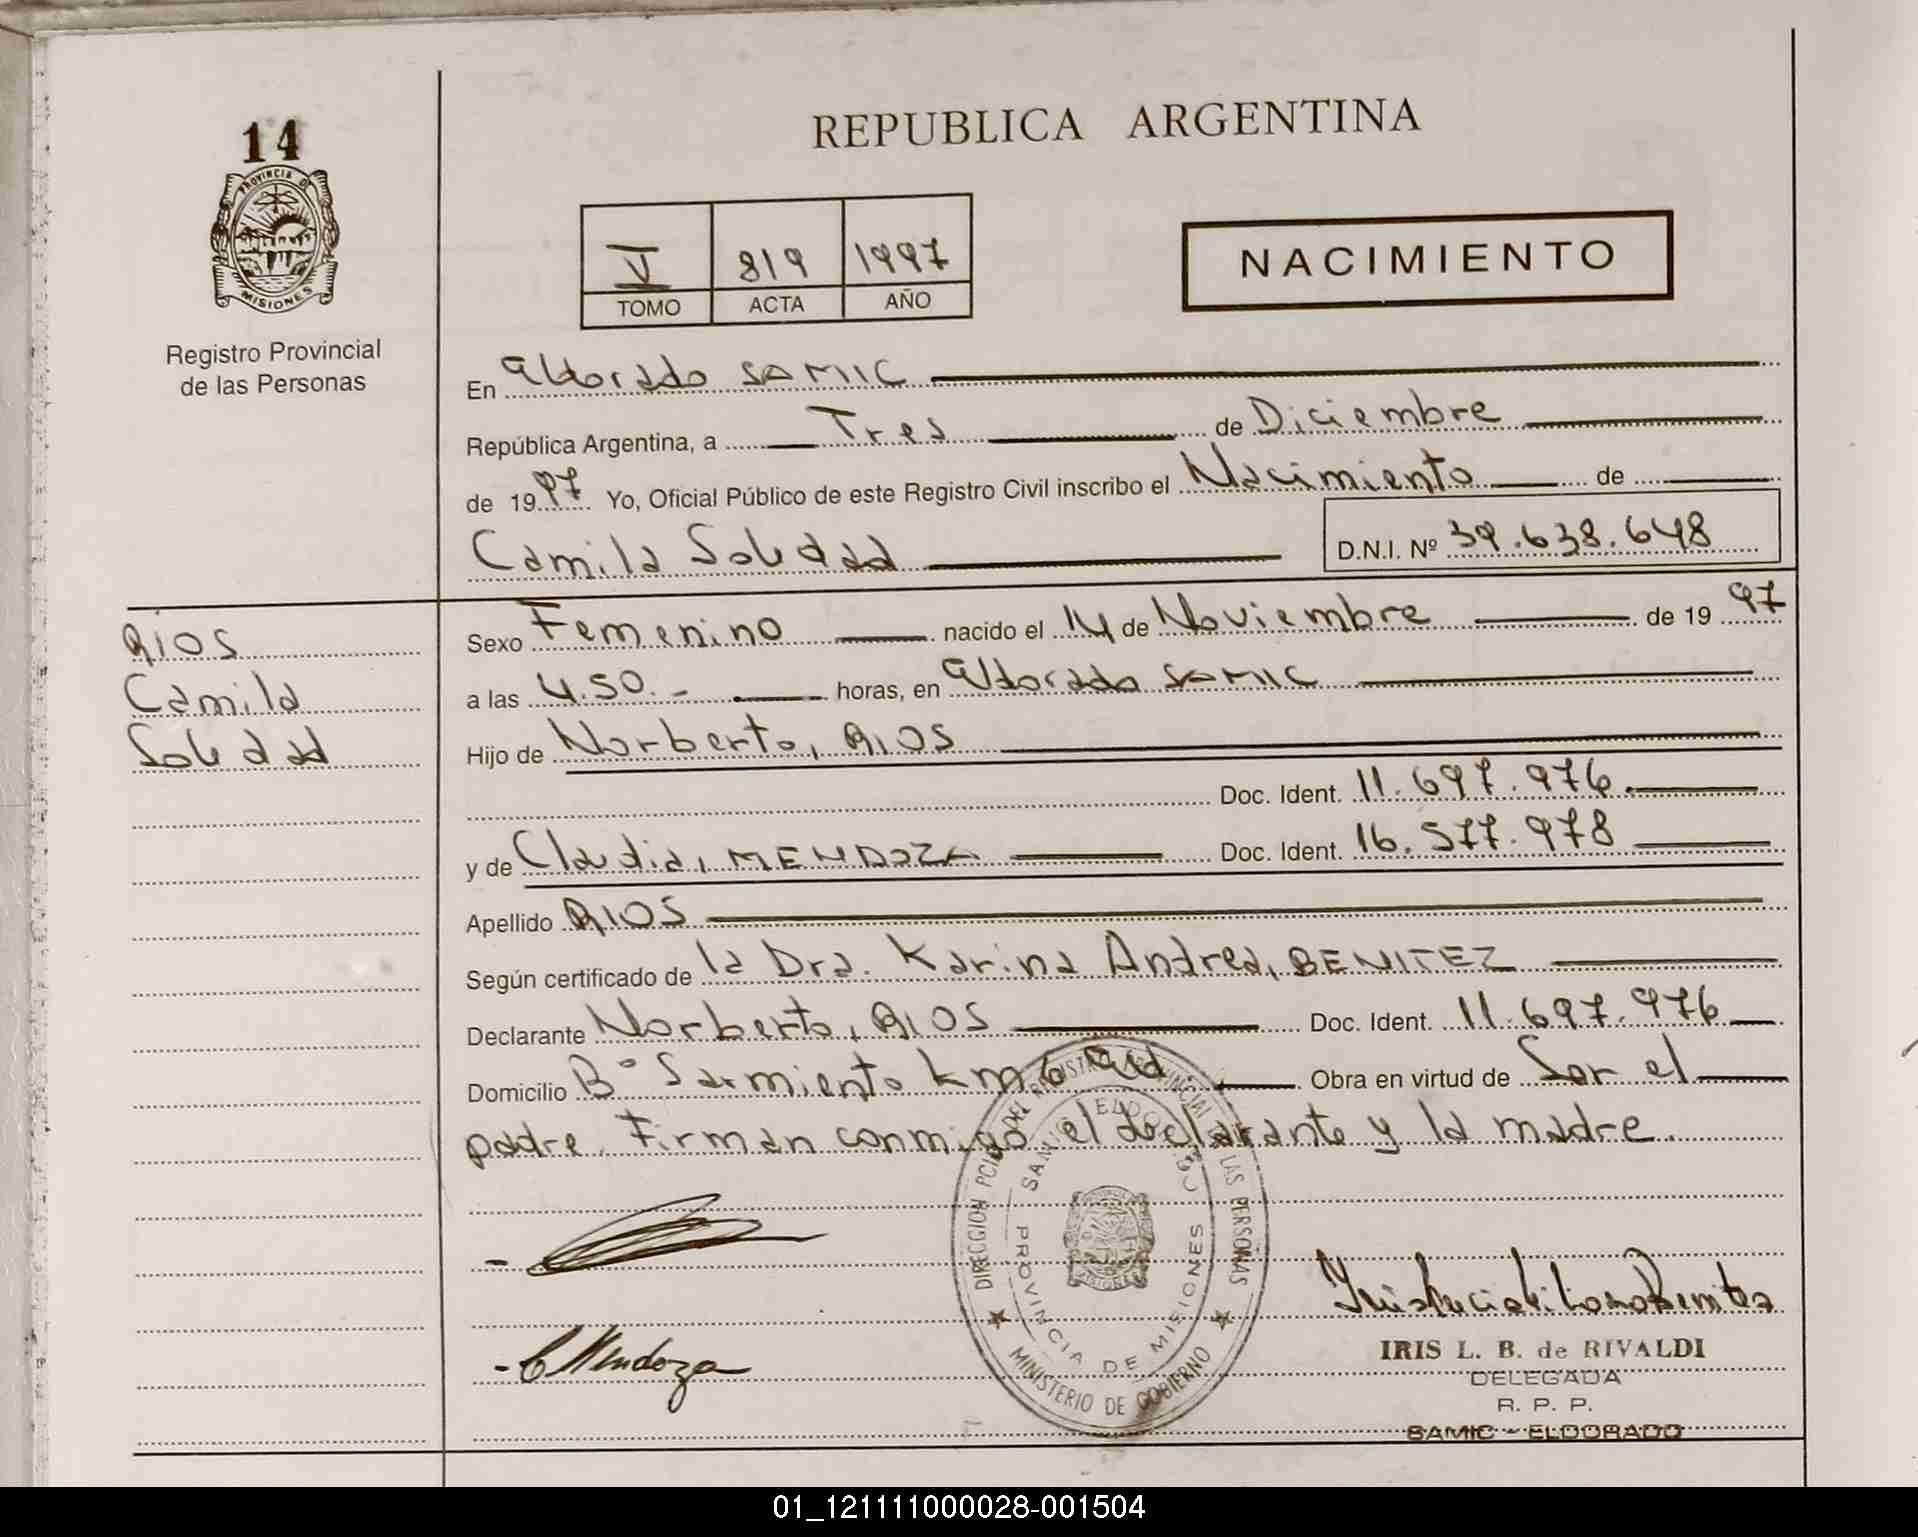 14
PROVINCIA DE
MISIONES
Registro Provincial
de las Personas
REPUBLICA ARGENTINA
V 819 1997
TOMO ACTA AÑO
NACIMIENTO
En Eldorado SAMIC
República Argentina, a Tres de Diciembre
de 1997 Yo, Oficial Público de este Registro Civil inscribo el Nacimiento de
Camila Soledad D.N.I. Nº 39.638.648
RIOS
Camila
Soledad
Sexo Femenino nacido el 14 de Noviembre de 1997
a las 4.50.- horas, en Eldorado SAMIC
Hijo de Norberto, RIOS
Doc. Ident. 11.697.976
y de Claudia, MENDOZA Doc. Ident. 16.577.978
Apellido RIOS
Según certificado de la Dra. Karina Andrea, BENITEZ
Declarante Norberto, RIOS Doc. Ident. 11.697.976
Domicilio Bº Sarmiento Km 6 Obra en virtud de Ser el
padre. Firman conmigo el declarante y la madre.
DIRECCION PCIAL DEL REGISTRO PROVINCIAL DE LAS PERSONAS
SAMIC ELDORADO
PROVINCIA DE MISIONES
MINISTERIO DE GOBIERNO
- C Mendoza
IRIS L. B. de RIVALDI
DELEGADA
R. P. P.
SAMIC - ELDORADO
01_121111000028-001504